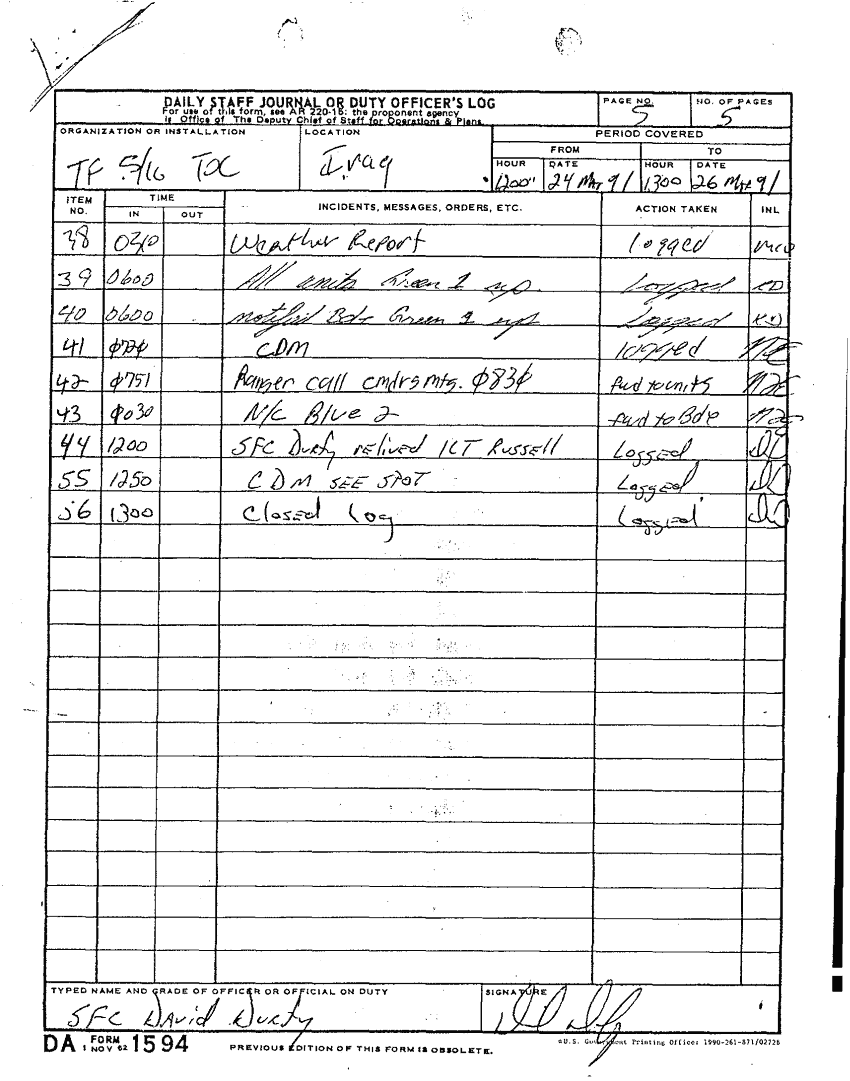 DAILY STAFF JOURNAL OR DUTY OFFICER'S LOG
For use of this form, see AR 220-15; the proponent agency
is Office of The Deputy Chief of Staff for Operations & Plans.
PAGE NO.
5
NO. OF PAGES
5
ORGANIZATION OR INSTALLATION
TF 5/16 TOC
LOCATION
Iraq
PERIOD COVERED
FROM TO
HOUR DATE HOUR DATE
1200 24 Mar 91 1300 26 Mar 91
ITEM NO. TIME IN OUT INCIDENTS, MESSAGES, ORDERS, ETC. ACTION TAKEN INL
38 0310 Weather Report logged
39 0600 All units Green 1 up. Logged
40 0600 notified Bde Green 1 up Logged
41 CDM logged
42 0751 Ranger call cmdrs mtg. 0830 fwd to units
43 N/C Blue 2 fwd to Bde
44 1200 SFC Durfy relived 1LT Russell Logged
55 1250 CDM SEE SPOT Logged
56 1300 Closed Log Logged
TYPED NAME AND GRADE OF OFFICER OR OFFICIAL ON DUTY
SFC David Durfy
SIGNATURE
DA FORM 1 NOV 62 1594
PREVIOUS EDITION OF THIS FORM IS OBSOLETE.
*U.S. Government Printing Office: 1990-261-871/02728